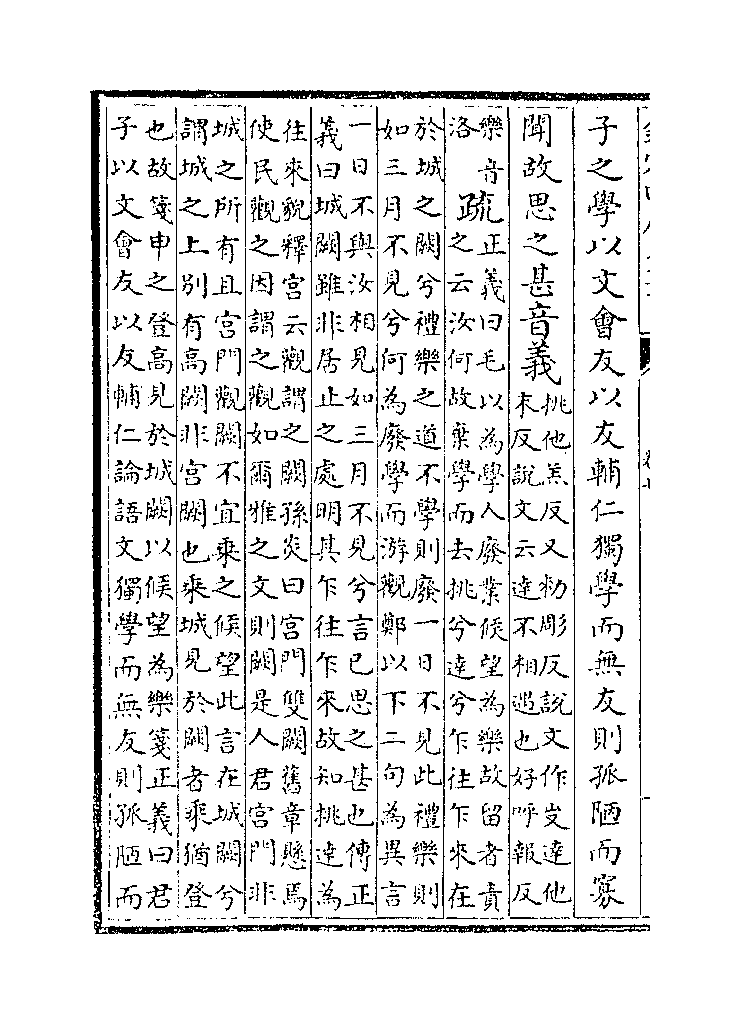 子之學以文會友以友輔仁獨學而無友則孤陋而寡
聞故思之甚音義
挑他羔反又勑彫反說文作叏達他
末反說文云達不相遇也好呼報反
樂音
洛
疏
正義曰毛以為學人廢業候望為樂故留者責
之云汝何故棄學而去挑兮達兮乍往乍來在
於城之闕兮禮樂之道不學則廢一日不見此禮樂則
如三月不見兮何為廢學而游觀鄭以下二句為異言
一日不與汝相見如三月不見兮言已思之甚也傳正
義曰城闕雖非居止之處明其乍往乍來故知挑達為
往來貌釋宮云觀謂之闕孫炎曰宮門雙闕舊章懸焉
使民觀之因謂之觀如爾雅之文則闕是人君宮門非
城之所有且宮門觀闕不宜乘之候望此言在城闕兮
謂城之上别有高闕非宮闕也乘城見於闕者乘猶登
也故箋申之登高見於城闕以候望為樂箋正義曰君
子以文會友以友輔仁論語文獨學而無友則孤陋而